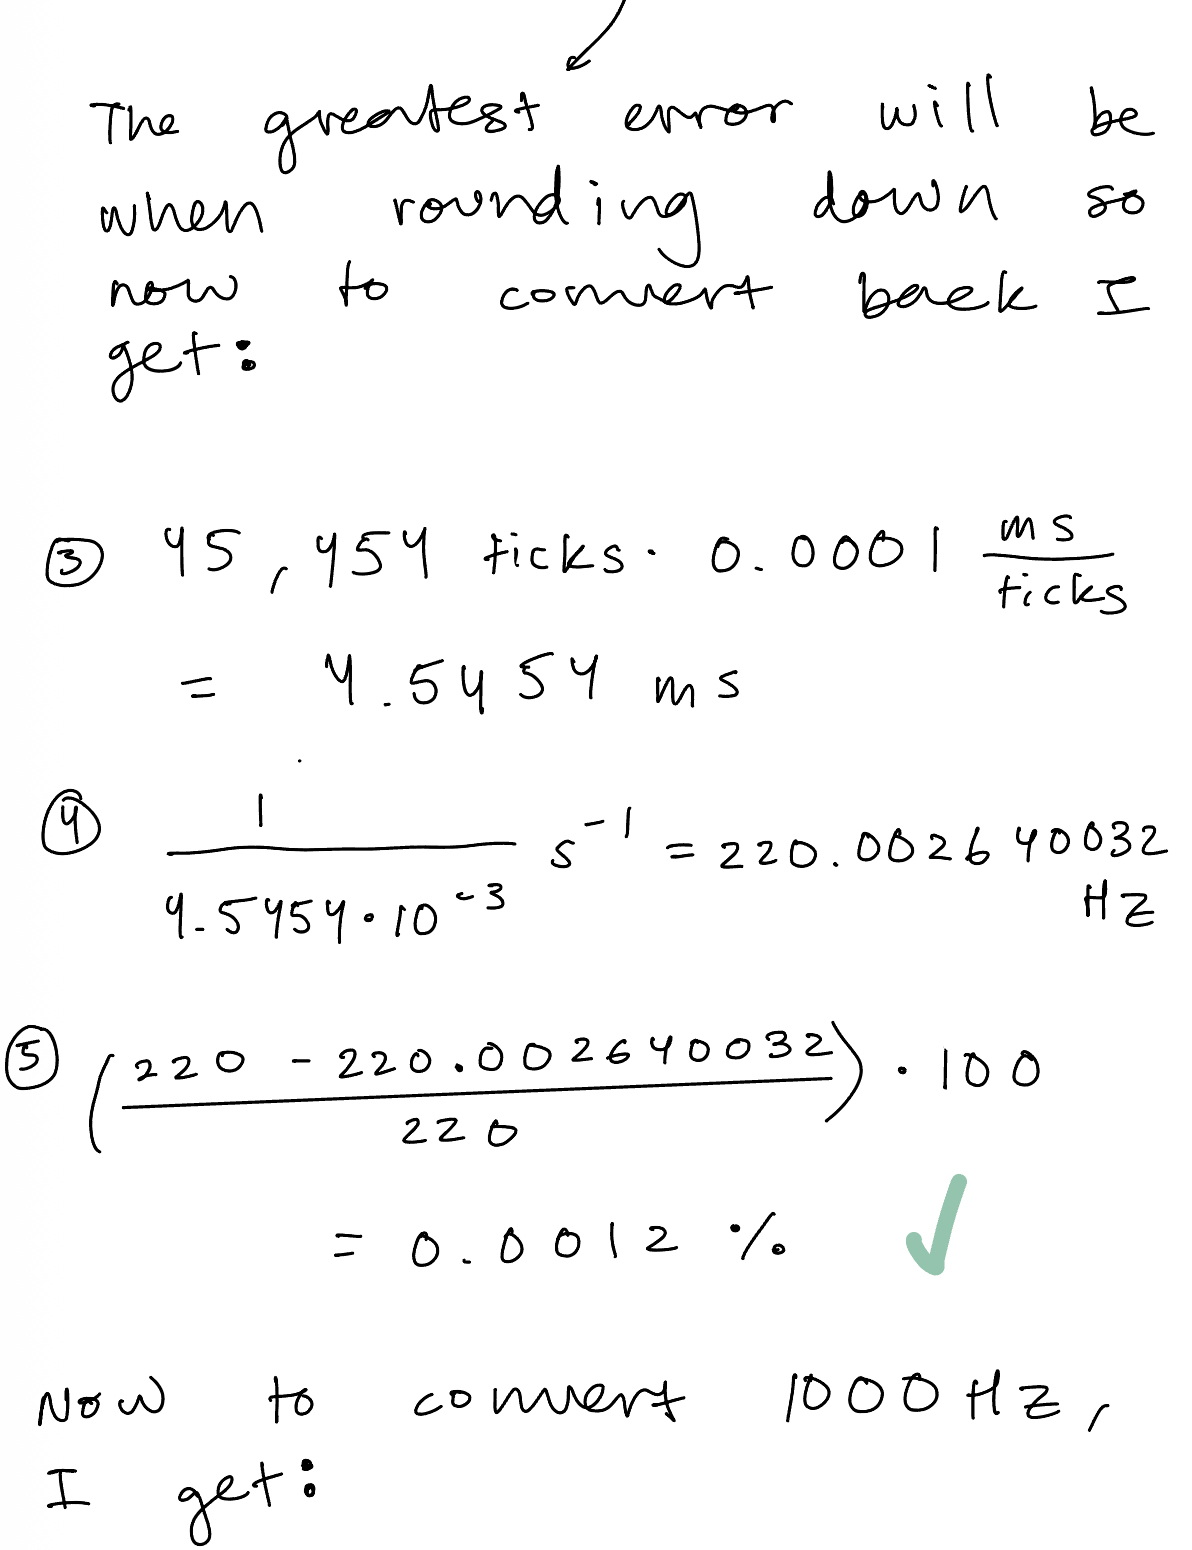 The greatest error will be
when rounding down so
now to convert back I
get:
③ 45,454 ticks · 0.0001 ms/ticks
= 4.5454 ms
④ 1/(4.5454·10^-3) s^-1 = 220.002640032
Hz
⑤ ((220 - 220.002640032)/220) · 100
= 0.0012 % ✓
Now to convert 1000Hz,
I get: